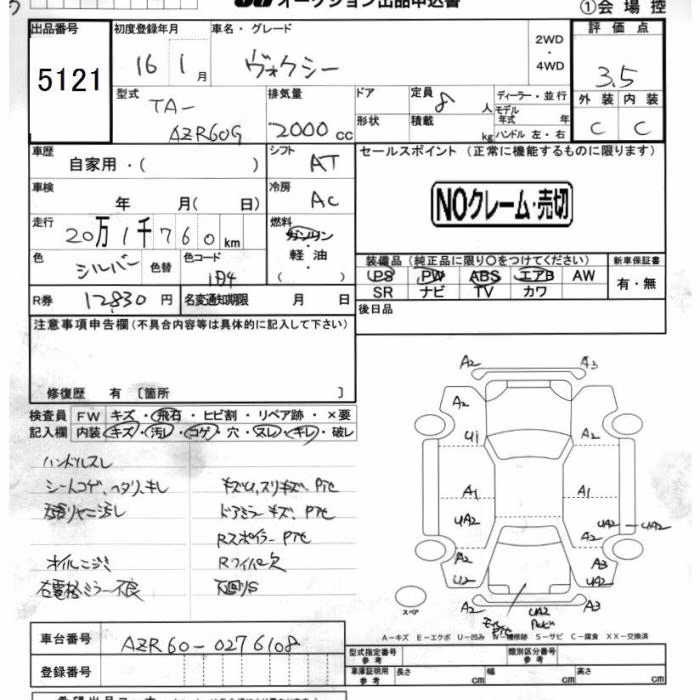 オークション出品申込書
①会場控
出品番号
5121
初度登録年月
16 1 月
車名・グレード
ヴォクシー
2WD・4WD
評価点
3.5
外装 内装
C C
型式
TA-
AZR60G
排気量
2000 cc
ドア
形状
定員 8 人
積載 kg
ディーラー・並行
モデル年式 年
ハンドル 左・右
車歴
自家用・( )
シフト AT
セールスポイント (正常に機能するものに限ります)
NOクレーム・売切
車検 年 月( 日)
冷房 AC
走行 20万1千760km
燃料
ガソリン
軽油
( )
色 シルバー 色替
色コード
装備品(純正品に限り〇をつけてください)
PS PW ABS エアB AW
SR ナビ TV カワ
新車保証書
有・無
R券 12830 円
名変通知期限 月 日
後日品
注意事項申告欄(不具合内容等は具体的に記入して下さい)
修復歴 有 〔箇所 〕
検査員記入欄
FW キズ・飛石・ヒビ割・リペア跡・×要
内装 キズ・汚レ・コゲ・穴・スレ・キレ・破レ
ハンドルスレ
シートコゲ、ヘタリ、キレ
オイルニジミ
右電格ミラー不良
ドアミラーキズ、アセ
Rスポイラーアセ
Rワイパー欠
下回りS
A2 A3
A2
U1 A2
A1 A1
UA2 UA2 UA2
A2
A2 A3
U2 UA2
A2 UA2 A3
スペア
A-キズ E-エクボ U-凹み W-補修跡 S-サビ C-腐食 XX-交換済
車台番号 AZR60-0276108
登録番号
型式指定番号 参考
類別区分番号 参考
車庫証明用 参考 長さ cm 幅 cm 高さ cm